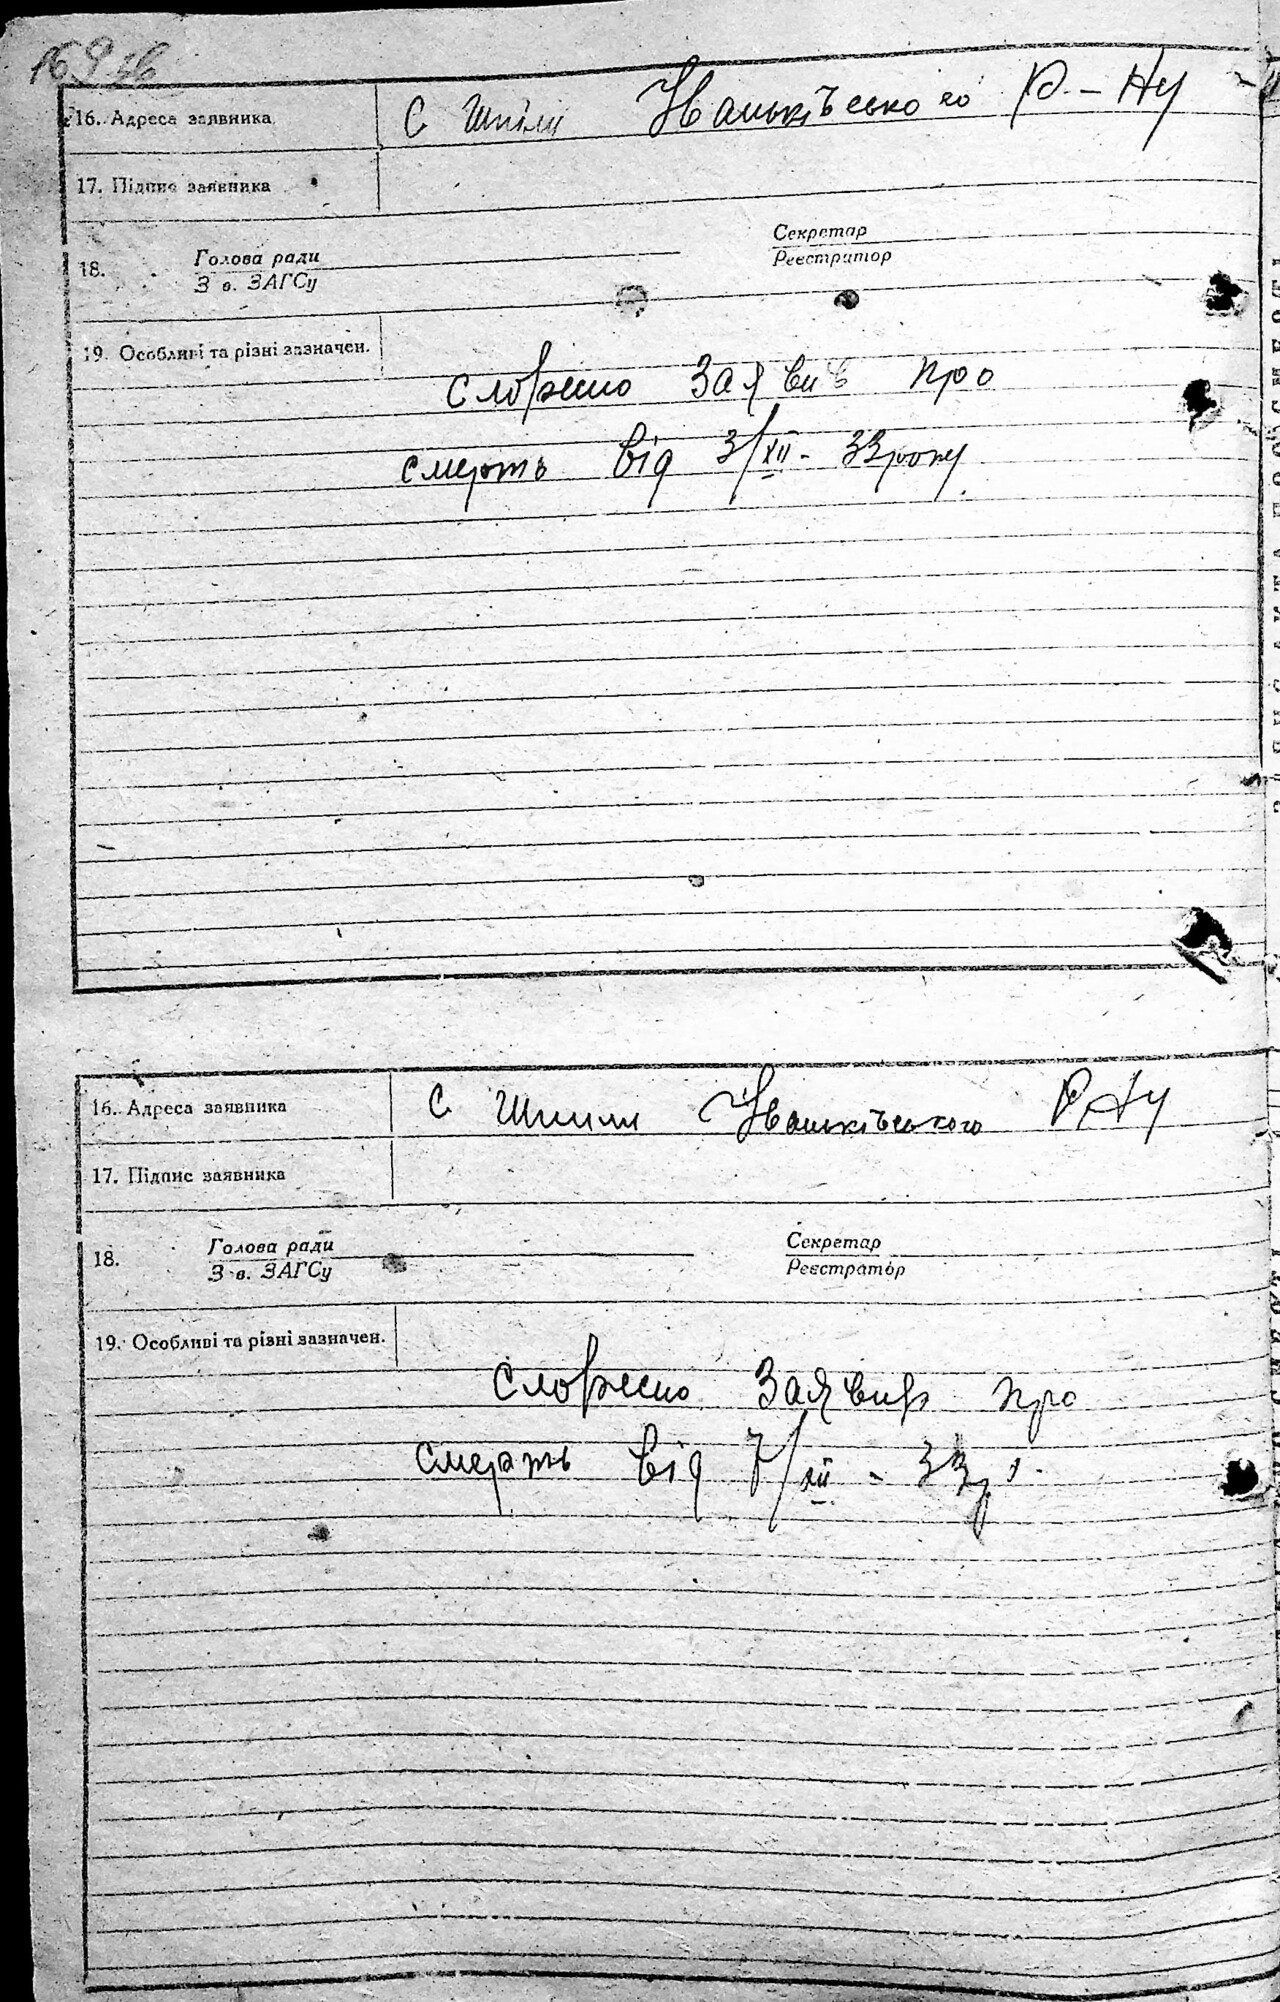 16. Адреса заявника с Шпіли Іваньківського Р-Ну
17. Підпис заявника
Секретар
18. Голова ради Реєстратор
З в. ЗАГСу
19. Особливі та різні зазначен.
словесно Заявив про
смерть від 3/XII- 33 року.
16. Адреса заявника с Шпили Іваньківського Р.Ну
17. Підпис заявника
18. Голова ради Секретар
З в. ЗАГСу Реєстратор
19. Особливі та різні зазначен.
словесно Заявив про
смерть від 7/XII - 33р.